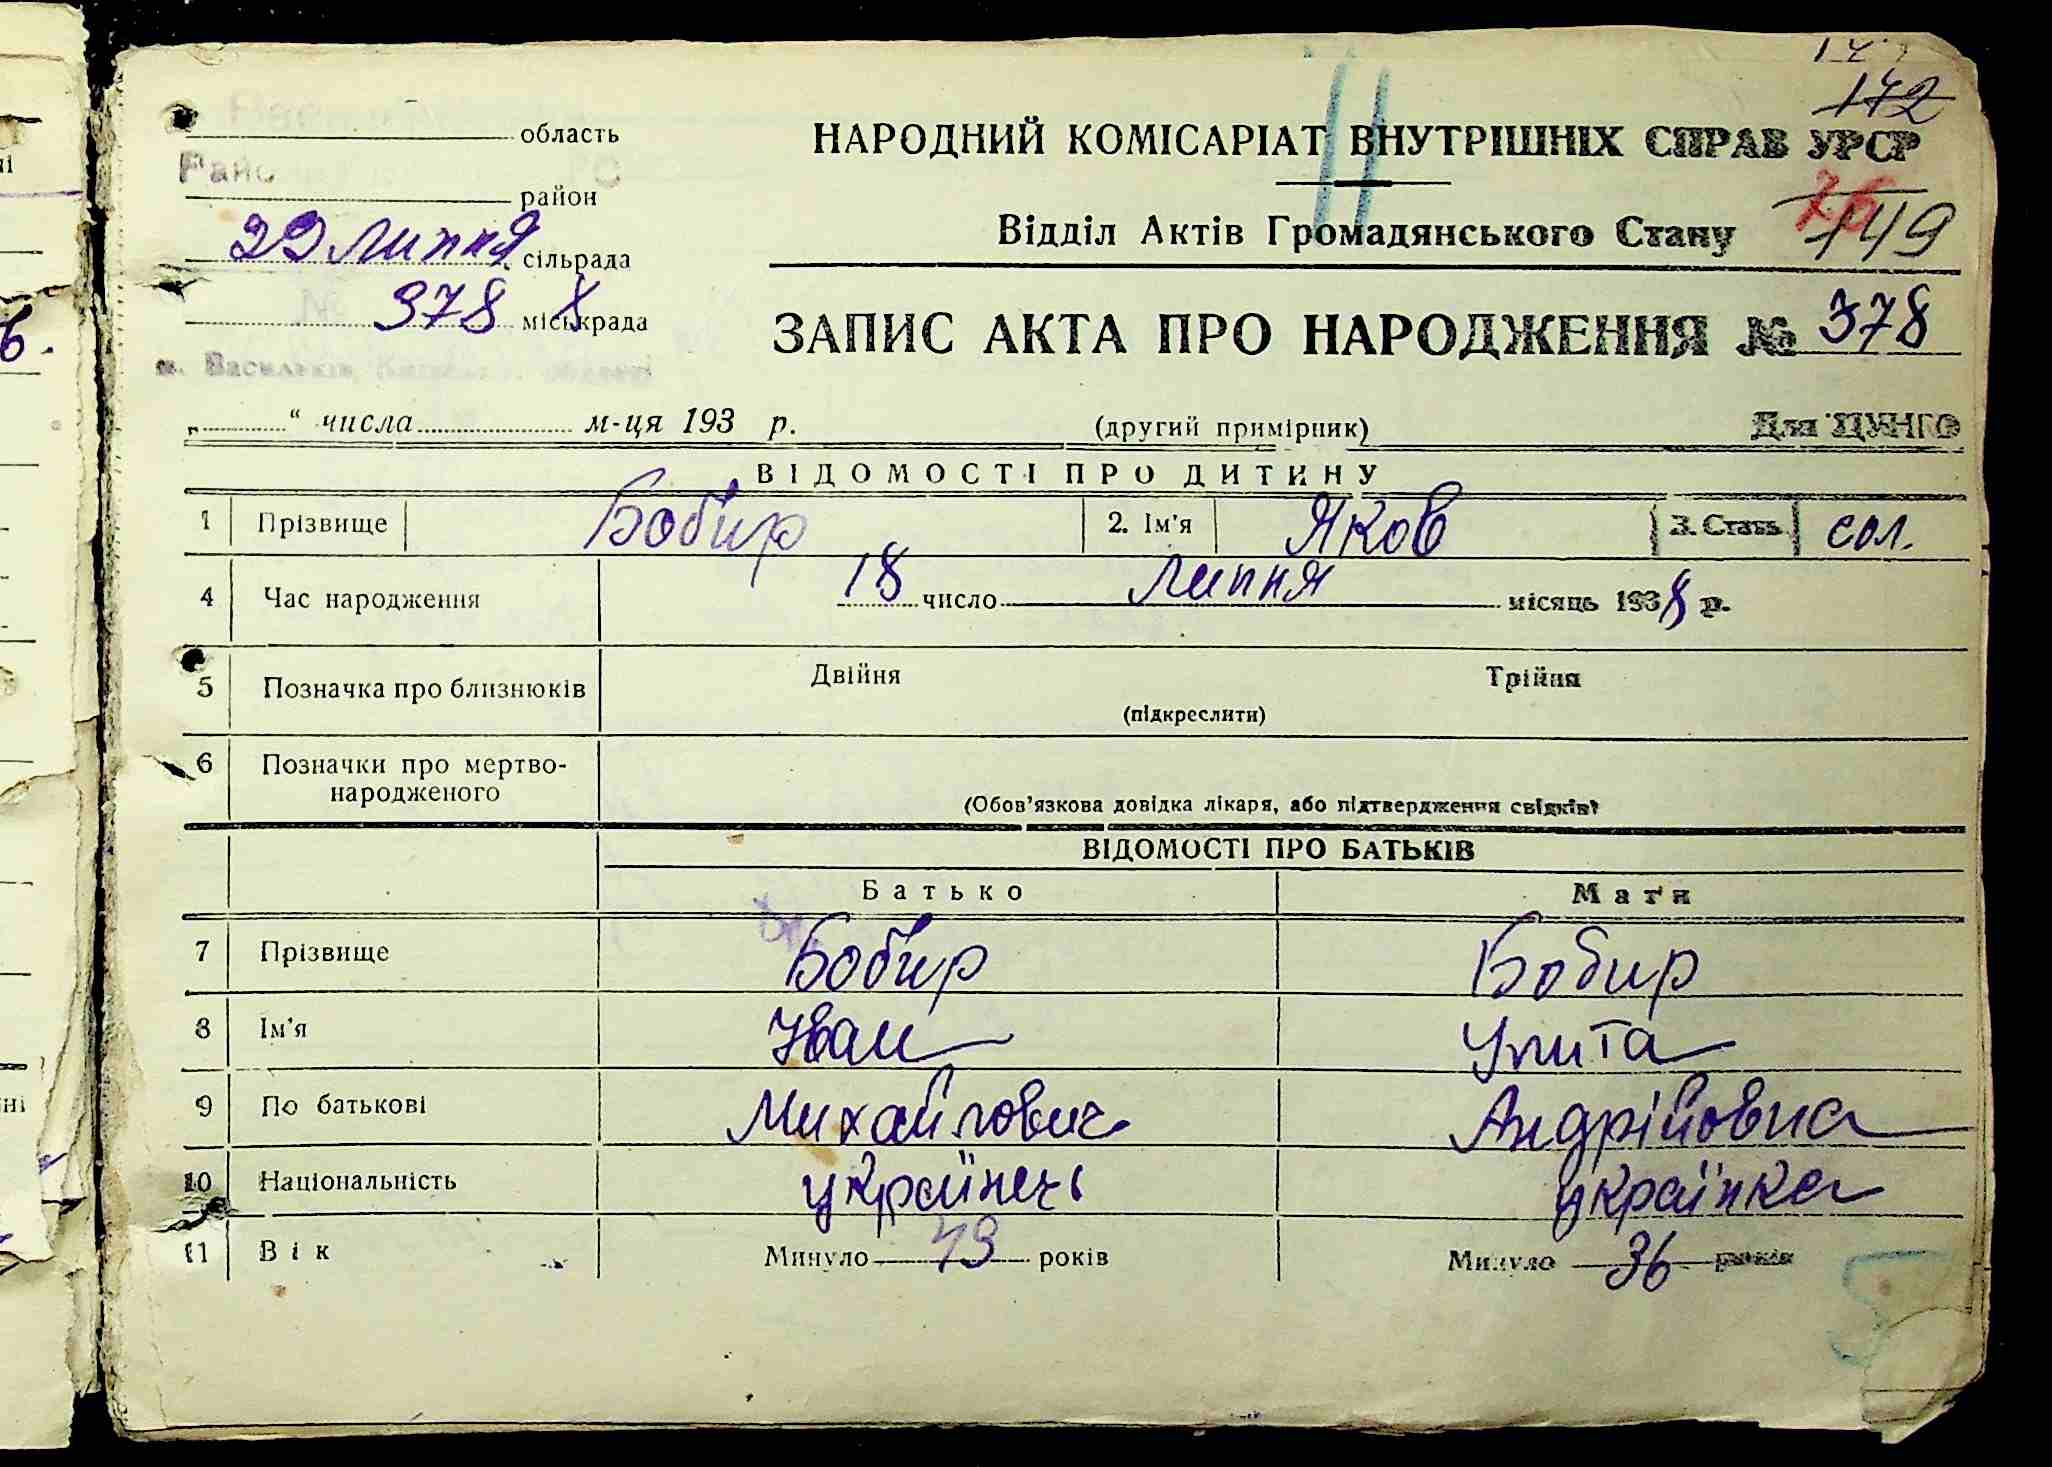 172
область
НАРОДНИЙ КОМІСАРІАТ ВНУТРІШНІХ СПРАВ УРСР
Райо
район
76
149
Відділ Актів Громадянського Стану
29 липня сільрада
378 8 міськрада
ЗАПИС АКТА ПРО НАРОДЖЕННЯ № 378
м. Васильків, Київської області
„ “ числа м-ця 193 р.
(другий примірник)
Для ЦУНГО
ВІДОМОСТІ ПРО ДИТИНУ
1 Прізвище Бобир 2. Ім'я Яков 3. Стать сол.
4 Час народження 18 число липня місяць 1938 р.
5 Позначка про близнюків Двійня Трійня
(підкреслити)
6 Позначки про мертво-
народженого
(Обов'язкова довідка лікаря, або підтвердження свідків)
ВІДОМОСТІ ПРО БАТЬКІВ
Батько Мати
7 Прізвище Бобир Бобир
8 Ім'я Иван
9 По батькові Михайлович Андрійовна
10 Національність українець українка
11 Вік Минуло 43 років Минуло 36 років
5